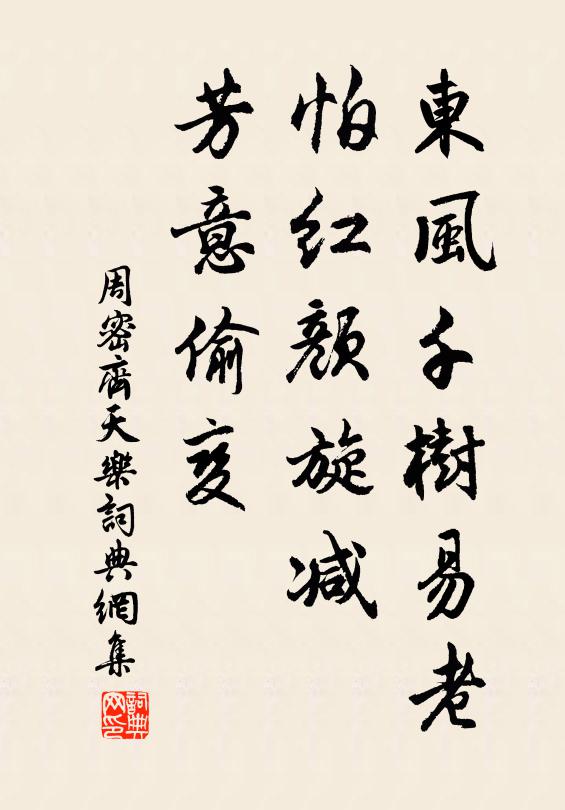 東風千樹易老
怕红顏旋减
芳意偷变
周密齊天樂詞典網集
詞典
网印